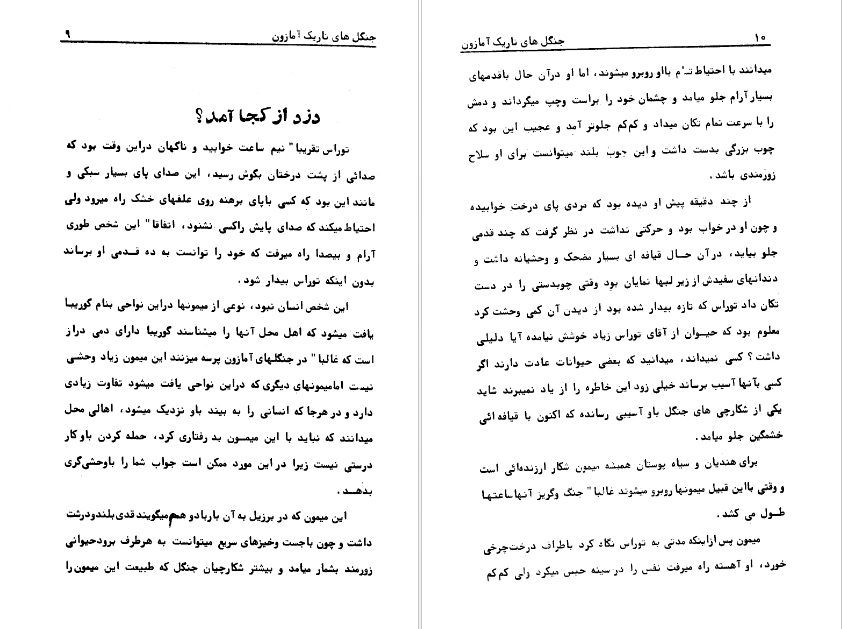 جنگل های تاریک آمازون ۹
دزد از کجا آمد؟
توراس تقریبا" نیم ساعت خوابید و ناگهان دراین وقت بود که
صدائی از پشت درختان بگوش رسید، این صدای پای بسیار سبکی و
مانند این بود که کسی باپای برهنه روی علفهای خشک راه میرود ولی
احتیاط میکند که صدای پایش راکسی نشنود، اتفاقا" این شخص طوری
آرام و بیصدا راه میرفت که خود را توانست به ده قدمی او برساند
بدون اینکه توراس بیدار شود.
این شخص انسان نبود، نوعی از میمونها دراین نواحی بنام گوریبا
یافت میشود که اهل محل آنها را میشناسند گوریبا دارای دمی دراز
است که غالبا" در جنگلهای آمازون پرسه میزنند این میمون زیاد وحشی
نیست امامیمونهای دیگری که دراین نواحی یافت میشود تفاوت زیادی
دارد و در هرجا که انسانی را به بیند باو نزدیک میشود، اهالی محل
میدانند که نباید با این میمون بد رفتاری کرد، حمله کردن باو کار
درستی نیست زیرا در این مورد ممکن است جواب شما را باوحشی‌گری
بدهد.
این میمون که در برزیل به آن باربادو هم میگویند قدی بلندودرشت
داشت و چون باجست وخیزهای سریع میتوانست به هرطرف برودحیوانی
زورمند بشمار میامد و بیشتر شکارچیان جنگل که طبیعت این میمون‌را
جنگل های تاریک آمازون ۱۰
میدانند با احتیاط تمام بااو روبرو میشوند، اما او درآن حال باقدمهای
بسیار آرام جلو میامد و چشمان خود را براست وچپ میگرداند و دمش
را با سرعت تمام تکان میداد و کم‌کم جلوتر آمد و عجیب این بود که
چوب بزرگی بدست داشت و این چوب بلند میتوانست برای او سلاح
زورمندی باشد.
از چند دقیقه پیش او دیده بود که مردی پای درخت خوابیده
و چون او در خواب بود و حرکتی نداشت در نظر گرفت که چند قدمی
جلو بیاید، در آن حال قیافه ای بسیار مضحک و وحشیانه داشت و
دندانهای سفیدش از زیر لبها نمایان بود وقتی چوبدستی را در دست
تکان داد توراس که تازه بیدار شده بود از دیدن آن کمی وحشت کرد
معلوم بود که حیوان از آقای توراس زیاد خوشش نیامده آیا دلیلی
داشت؟ کسی نمیداند، میدانید که بعضی حیوانات عادت دارند اگر
کسی بآنها آسیب برساند خیلی زود این خاطره را از یاد نمیبرند شاید
یکی از شکارچی های جنگل باو آسیبی رسانده که اکنون با قیافه ائی
خشمگین جلو میامد.
برای هندیان و سیاه پوستان همیشه میمون شکار ارزنده‌ائی است
و وقتی بااین قبیل میمونها روبرو میشوند غالبا" جنگ وگریز آنهاساعتها
طول می کشد.
میمون پس ازاینکه مدتی به توراس نگاه کرد باطراف درخت‌چرخی
خورد، او آهسته راه میرفت نفس را در سینه حبس میکرد ولی کم‌کم